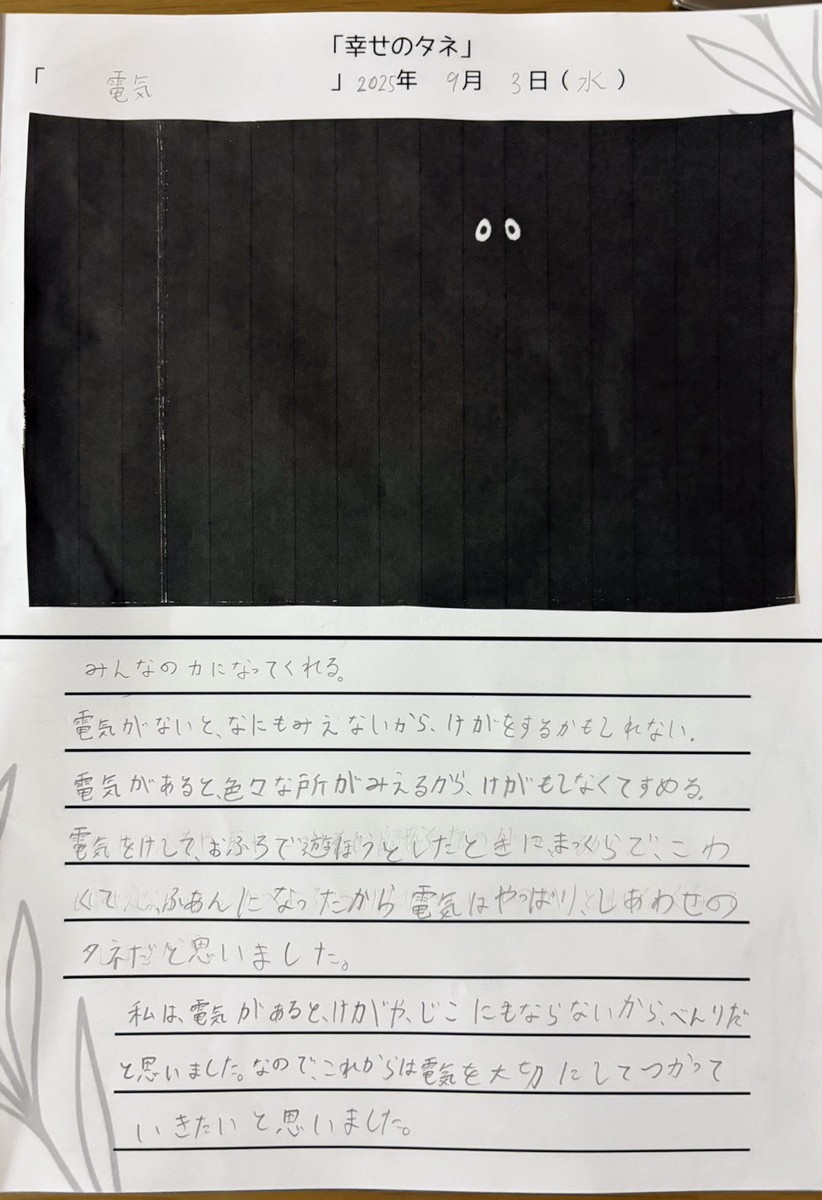 「幸せのタネ」
「 電気 」 2025年 9月 3日(水)
みんなの力になってくれる。
電気がないと、なにもみえないから、けがをするかもしれない。
電気があると、色々な所がみえるから、けがもしなくてすめる。
電気をけして、おふろで遊ぼうとしたときに、まっくらで、こわ
くて、ふあんになったから電気はやっぱり、しあわせの
タネだと思いました。
私は、電気があると、けがや、じこにもならないから、べんりだ
と思いました。なので、これからは電気を大切にしてつかって
いきたいと思いました。